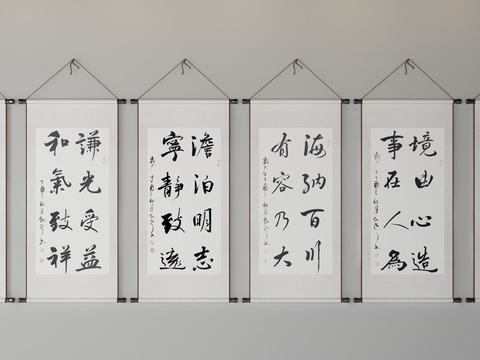 謙光受益
和氣致祥
澹泊明志
寧靜致遠
海納百川
有容乃大
境由心造
事在人為